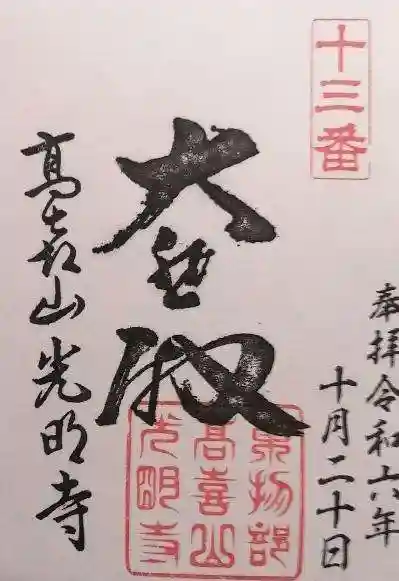 十三番
奉拝令和六年
十月二十日
大悲殿
高㐂山光明寺
東物部
高喜山
光明寺